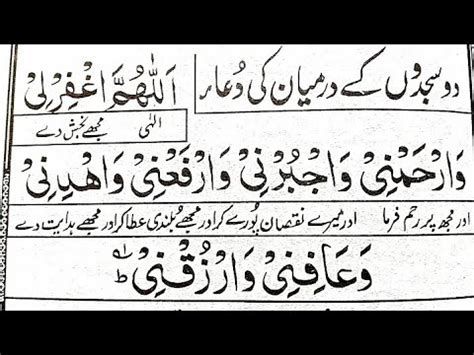 دو سجدوں کے درمیان کی دُعاء
اَللّٰهُمَّ اغْفِرْ لِیْ
الٰہی مجھے بخش دے
وَارْحَمْنِیْ وَاجْبُرْنِیْ وَارْفَعْنِیْ وَاهْدِنِیْ
اور مجھ پر رحم فرما اور میرے نقصان پورے کر اور مجھے بُلندی عطا کر اور مجھے ہدایت دے
وَعَافِنِیْ وَارْزُقْنِیْ